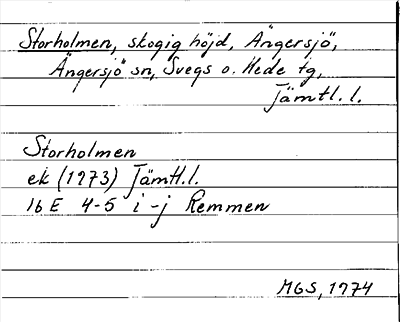 Storholmen, skogig höjd, Ängersjö,
Ängersjö sn, Svegs o. Hede tg,
Jämtl. l.
Storholmen
ek (1973) Jämtl. l.
16 E 4-5 i-j Remmen
MGS, 1974